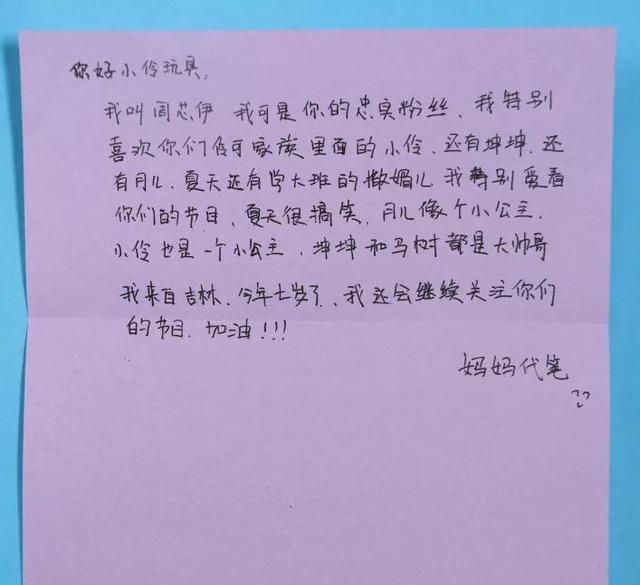 你好小伶玩具,
我叫周芯伊 我可是你的忠实粉丝、我特别
喜欢你们伶可家族里面的小伶、还有坤坤、还
有月儿、夏天还有学大班的撒媚儿 我特别爱看
你们的节目、夏天很搞笑、月儿像个小公主、
小伶也是一个小公主、坤坤和马树都是大帅哥
我来自吉林、今年七岁了、我还会继续关注你们
的节目、加油!!!
妈妈代笔